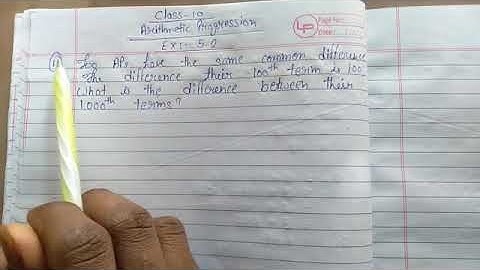 Class-10
Arithmetic Progression
Ex:- 5.2
LP
Page No.:
Date:
11 Two APs have the same common difference
The difference their 100th term is 100
What is the difference between their
1000th terms?